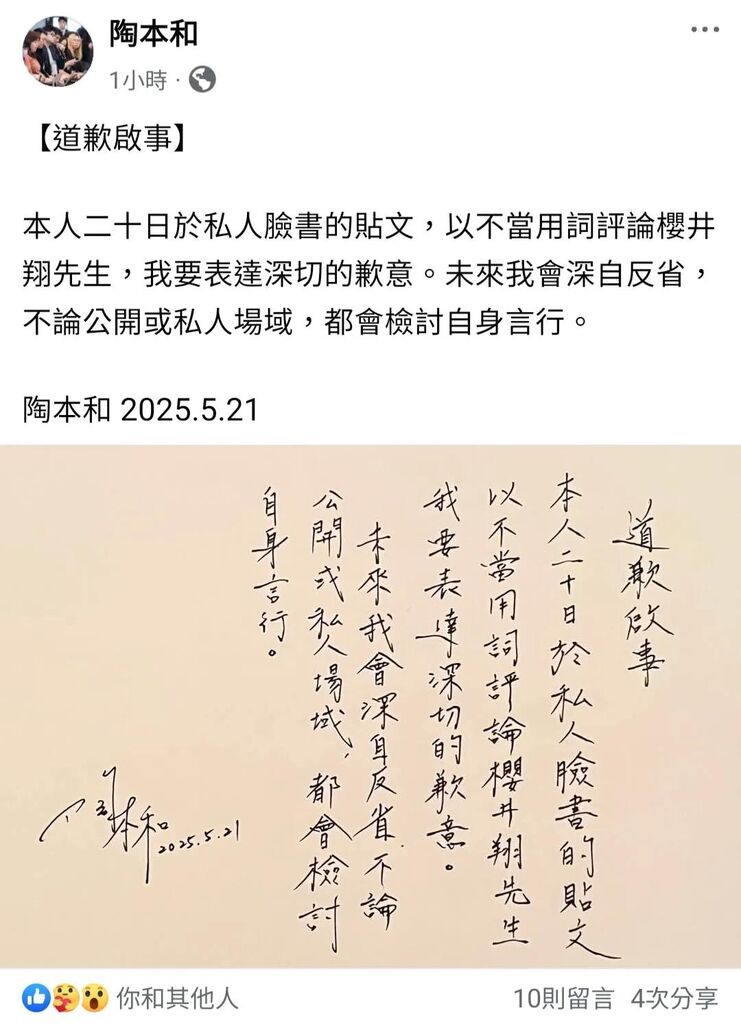 陶本和
1小時
【道歉啟事】
本人二十日於私人臉書的貼文，以不當用詞評論櫻井
翔先生，我要表達深切的歉意。未來我會深自反省，
不論公開或私人場域，都會檢討自身言行。
陶本和 2025.5.21
道歉啟事
本人二十日於私人臉書的貼文
以不當用詞評論櫻井翔先生
我要表達深切的歉意。
未來我會深自反省,不論
公開或私人場域,都會檢討
自身言行。
陶本和 2025.5.21
你和其他人
10則留言 4次分享